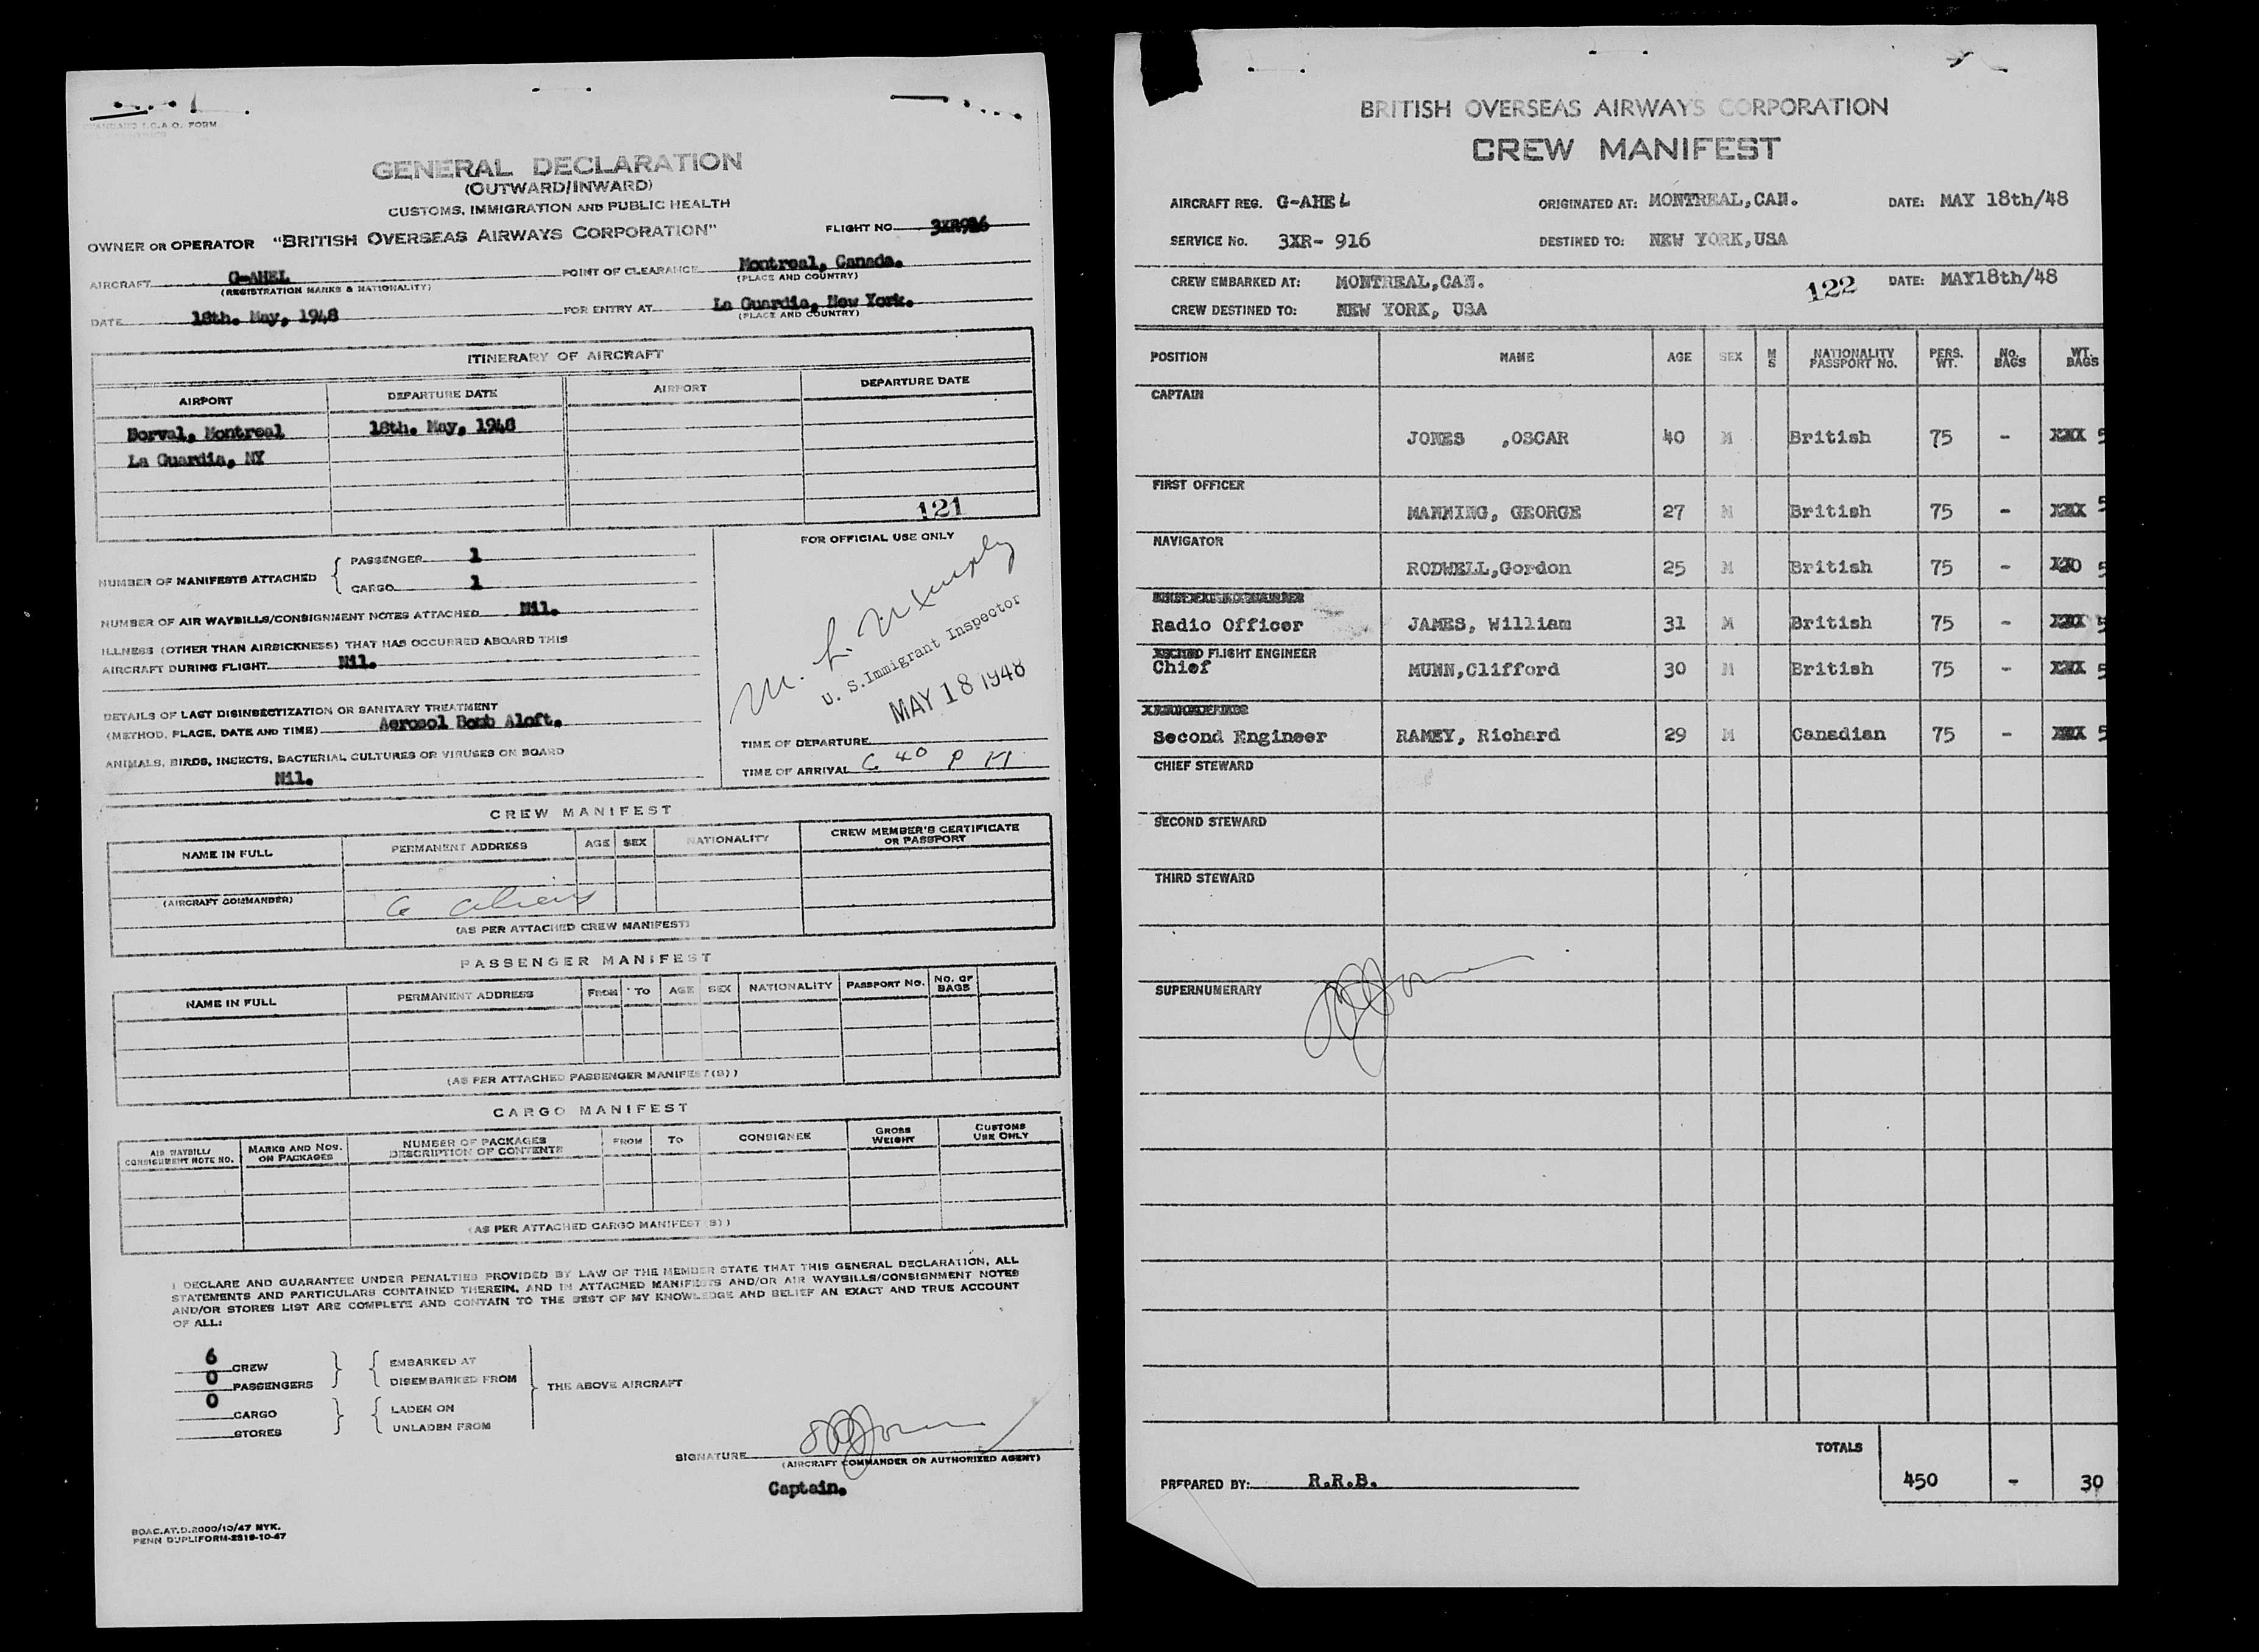 STANDARD I.C.A.O. FORM
GENERAL DECLARATION
(OUTWARD/INWARD)
CUSTOMS, IMMIGRATION AND PUBLIC HEALTH
OWNER OR OPERATOR "BRITISH OVERSEAS AIRWAYS CORPORATION" FLIGHT NO. 3XR916
AIRCRAFT G-AHEL POINT OF CLEARANCE Montreal, Canada.
(REGISTRATION MARKS & NATIONALITY) (PLACE AND COUNTRY)
DATE 18th. May, 1948 FOR ENTRY AT La Guardia, New York.
(PLACE AND COUNTRY)
ITINERARY OF AIRCRAFT
AIRPORT DEPARTURE DATE AIRPORT DEPARTURE DATE
Dorval, Montreal 18th. May, 1948
La Guardia, NY
121
NUMBER OF MANIFESTS ATTACHED { PASSENGER 1
CARGO 1
NUMBER OF AIR WAYBILLS/CONSIGNMENT NOTES ATTACHED Nil.
ILLNESS (OTHER THAN AIRSICKNESS) THAT HAS OCCURRED ABOARD THIS
AIRCRAFT DURING FLIGHT Nil.
DETAILS OF LAST DISINSECTIZATION OR SANITARY TREATMENT
(METHOD, PLACE, DATE AND TIME) Aerosol Bomb Aloft.
ANIMALS, BIRDS, INSECTS, BACTERIAL CULTURES OR VIRUSES ON BOARD
Nil.
FOR OFFICIAL USE ONLY
M. L. Murphy
U. S. Immigrant Inspector
MAY 18 1948
TIME OF DEPARTURE
TIME OF ARRIVAL 6 40 P M
CREW MANIFEST
NAME IN FULL PERMANENT ADDRESS AGE SEX NATIONALITY CREW MEMBER'S CERTIFICATE OR PASSPORT
(AIRCRAFT COMMANDER) 6 aliens
(AS PER ATTACHED CREW MANIFEST)
PASSENGER MANIFEST
NAME IN FULL PERMANENT ADDRESS FROM TO AGE SEX NATIONALITY PASSPORT No. NO. OF BAGS
(AS PER ATTACHED PASSENGER MANIFEST(S))
CARGO MANIFEST
AIR WAYBILL/ CONSIGNMENT NOTE NO. MARKS AND NOS. ON PACKAGES NUMBER OF PACKAGES DESCRIPTION OF CONTENTS FROM TO CONSIGNEE GROSS WEIGHT CUSTOMS USE ONLY
(AS PER ATTACHED CARGO MANIFEST(S))
I DECLARE AND GUARANTEE UNDER PENALTIES PROVIDED BY LAW OF THE MEMBER STATE THAT THIS GENERAL DECLARATION, ALL
STATEMENTS AND PARTICULARS CONTAINED THEREIN, AND IN ATTACHED MANIFESTS AND/OR AIR WAYBILLS/CONSIGNMENT NOTES
AND/OR STORES LIST ARE COMPLETE AND CONTAIN TO THE BEST OF MY KNOWLEDGE AND BELIEF AN EXACT AND TRUE ACCOUNT
OF ALL:
6 CREW } { EMBARKED AT
0 PASSENGERS DISEMBARKED FROM
THE ABOVE AIRCRAFT
0 CARGO } { LADEN ON
STORES UNLADEN FROM
SIGNATURE
(AIRCRAFT COMMANDER OR AUTHORIZED AGENT)
Captain.
BOAC.AT.D.2000/10/47 NYK.
PENN DUPLIFORM-2319-10-47
BRITISH OVERSEAS AIRWAYS CORPORATION
CREW MANIFEST
AIRCRAFT REG. G-AHEL ORIGINATED AT: MONTREAL,CAN. DATE: MAY 18th/48
SERVICE No. 3XR- 916 DESTINED TO: NEW YORK,USA
CREW EMBARKED AT: MONTREAL,CAN. 122 DATE: MAY18th/48
CREW DESTINED TO: NEW YORK, USA
POSITION NAME AGE SEX M S NATIONALITY PASSPORT No. PERS. WT. No. BAGS WT. BAGS
CAPTAIN
JONES ,OSCAR 40 M British 75 - XXX 5
FIRST OFFICER
MANNING, GEORGE 27 M British 75 - XXX 5
NAVIGATOR
RODWELL,Gordon 25 M British 75 - 5
Radio Officer JAMES, William 31 M British 75 - XXX 5
FLIGHT ENGINEER
Chief MUNN,Clifford 30 M British 75 - XXX 5
Second Engineer RAMEY, Richard 29 M Canadian 75 - XXX 5
CHIEF STEWARD
SECOND STEWARD
THIRD STEWARD
SUPERNUMERARY
TOTALS
PREPARED BY: R.R.B. 450 - 30